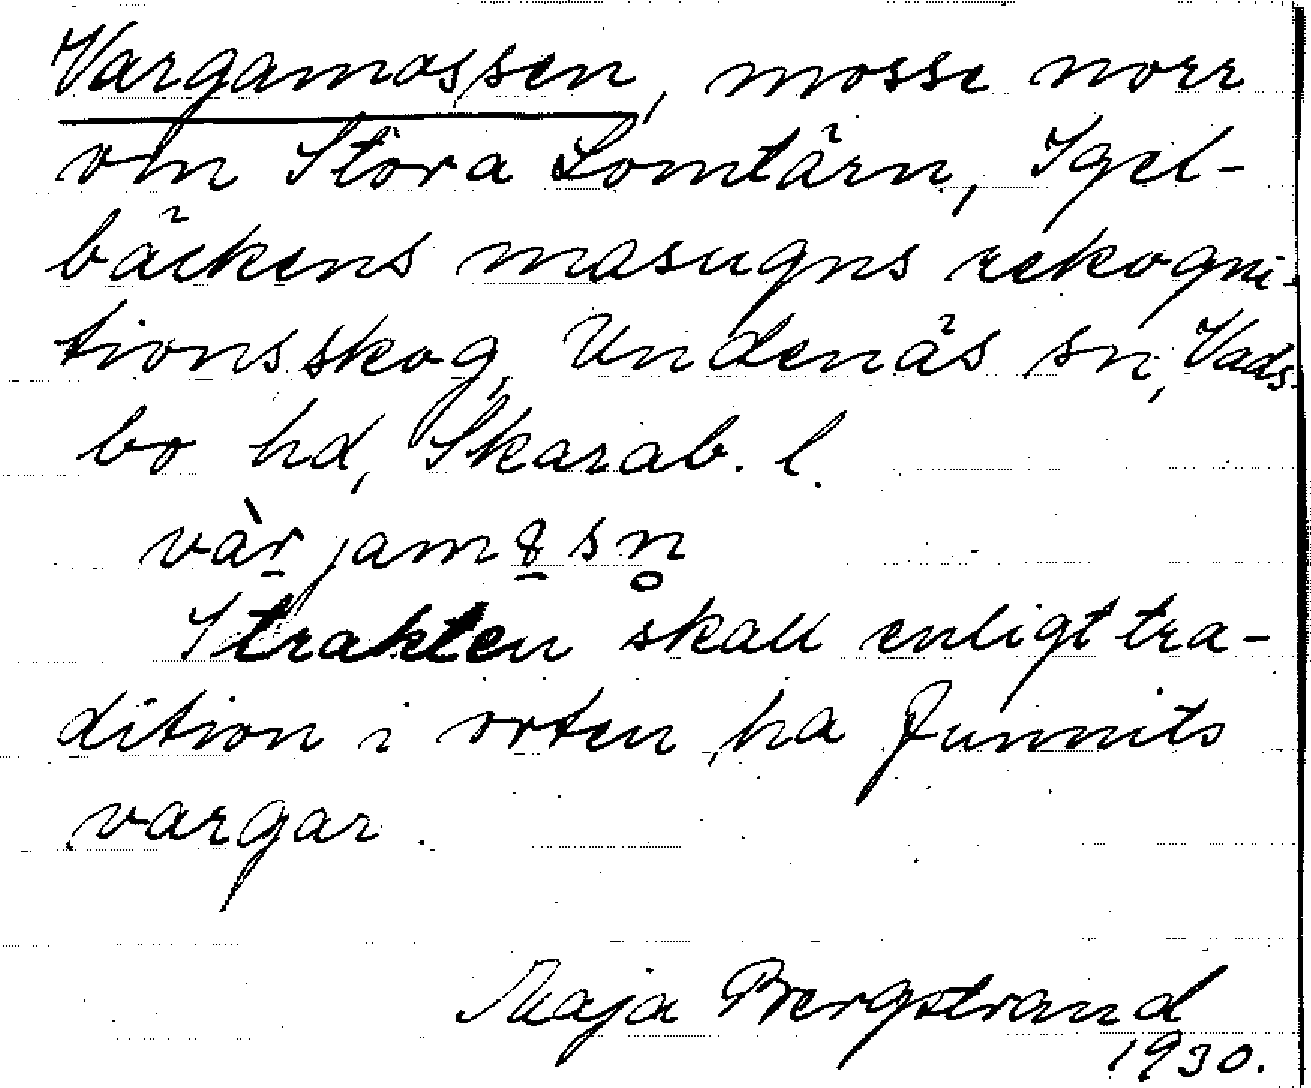 Vargamossen, mosse norr
om Stora Lomtärn, Igel-
bäckens masugns rekogni-
tionsskog, Undenäs sn, Vads-
bo hd, Skarab. l.
I trakten skall enligt tra-
dition i orten ha funnits
vargar.
Maja Bergstrand
1930.